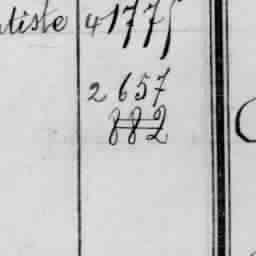 tiste 41775
2657
882